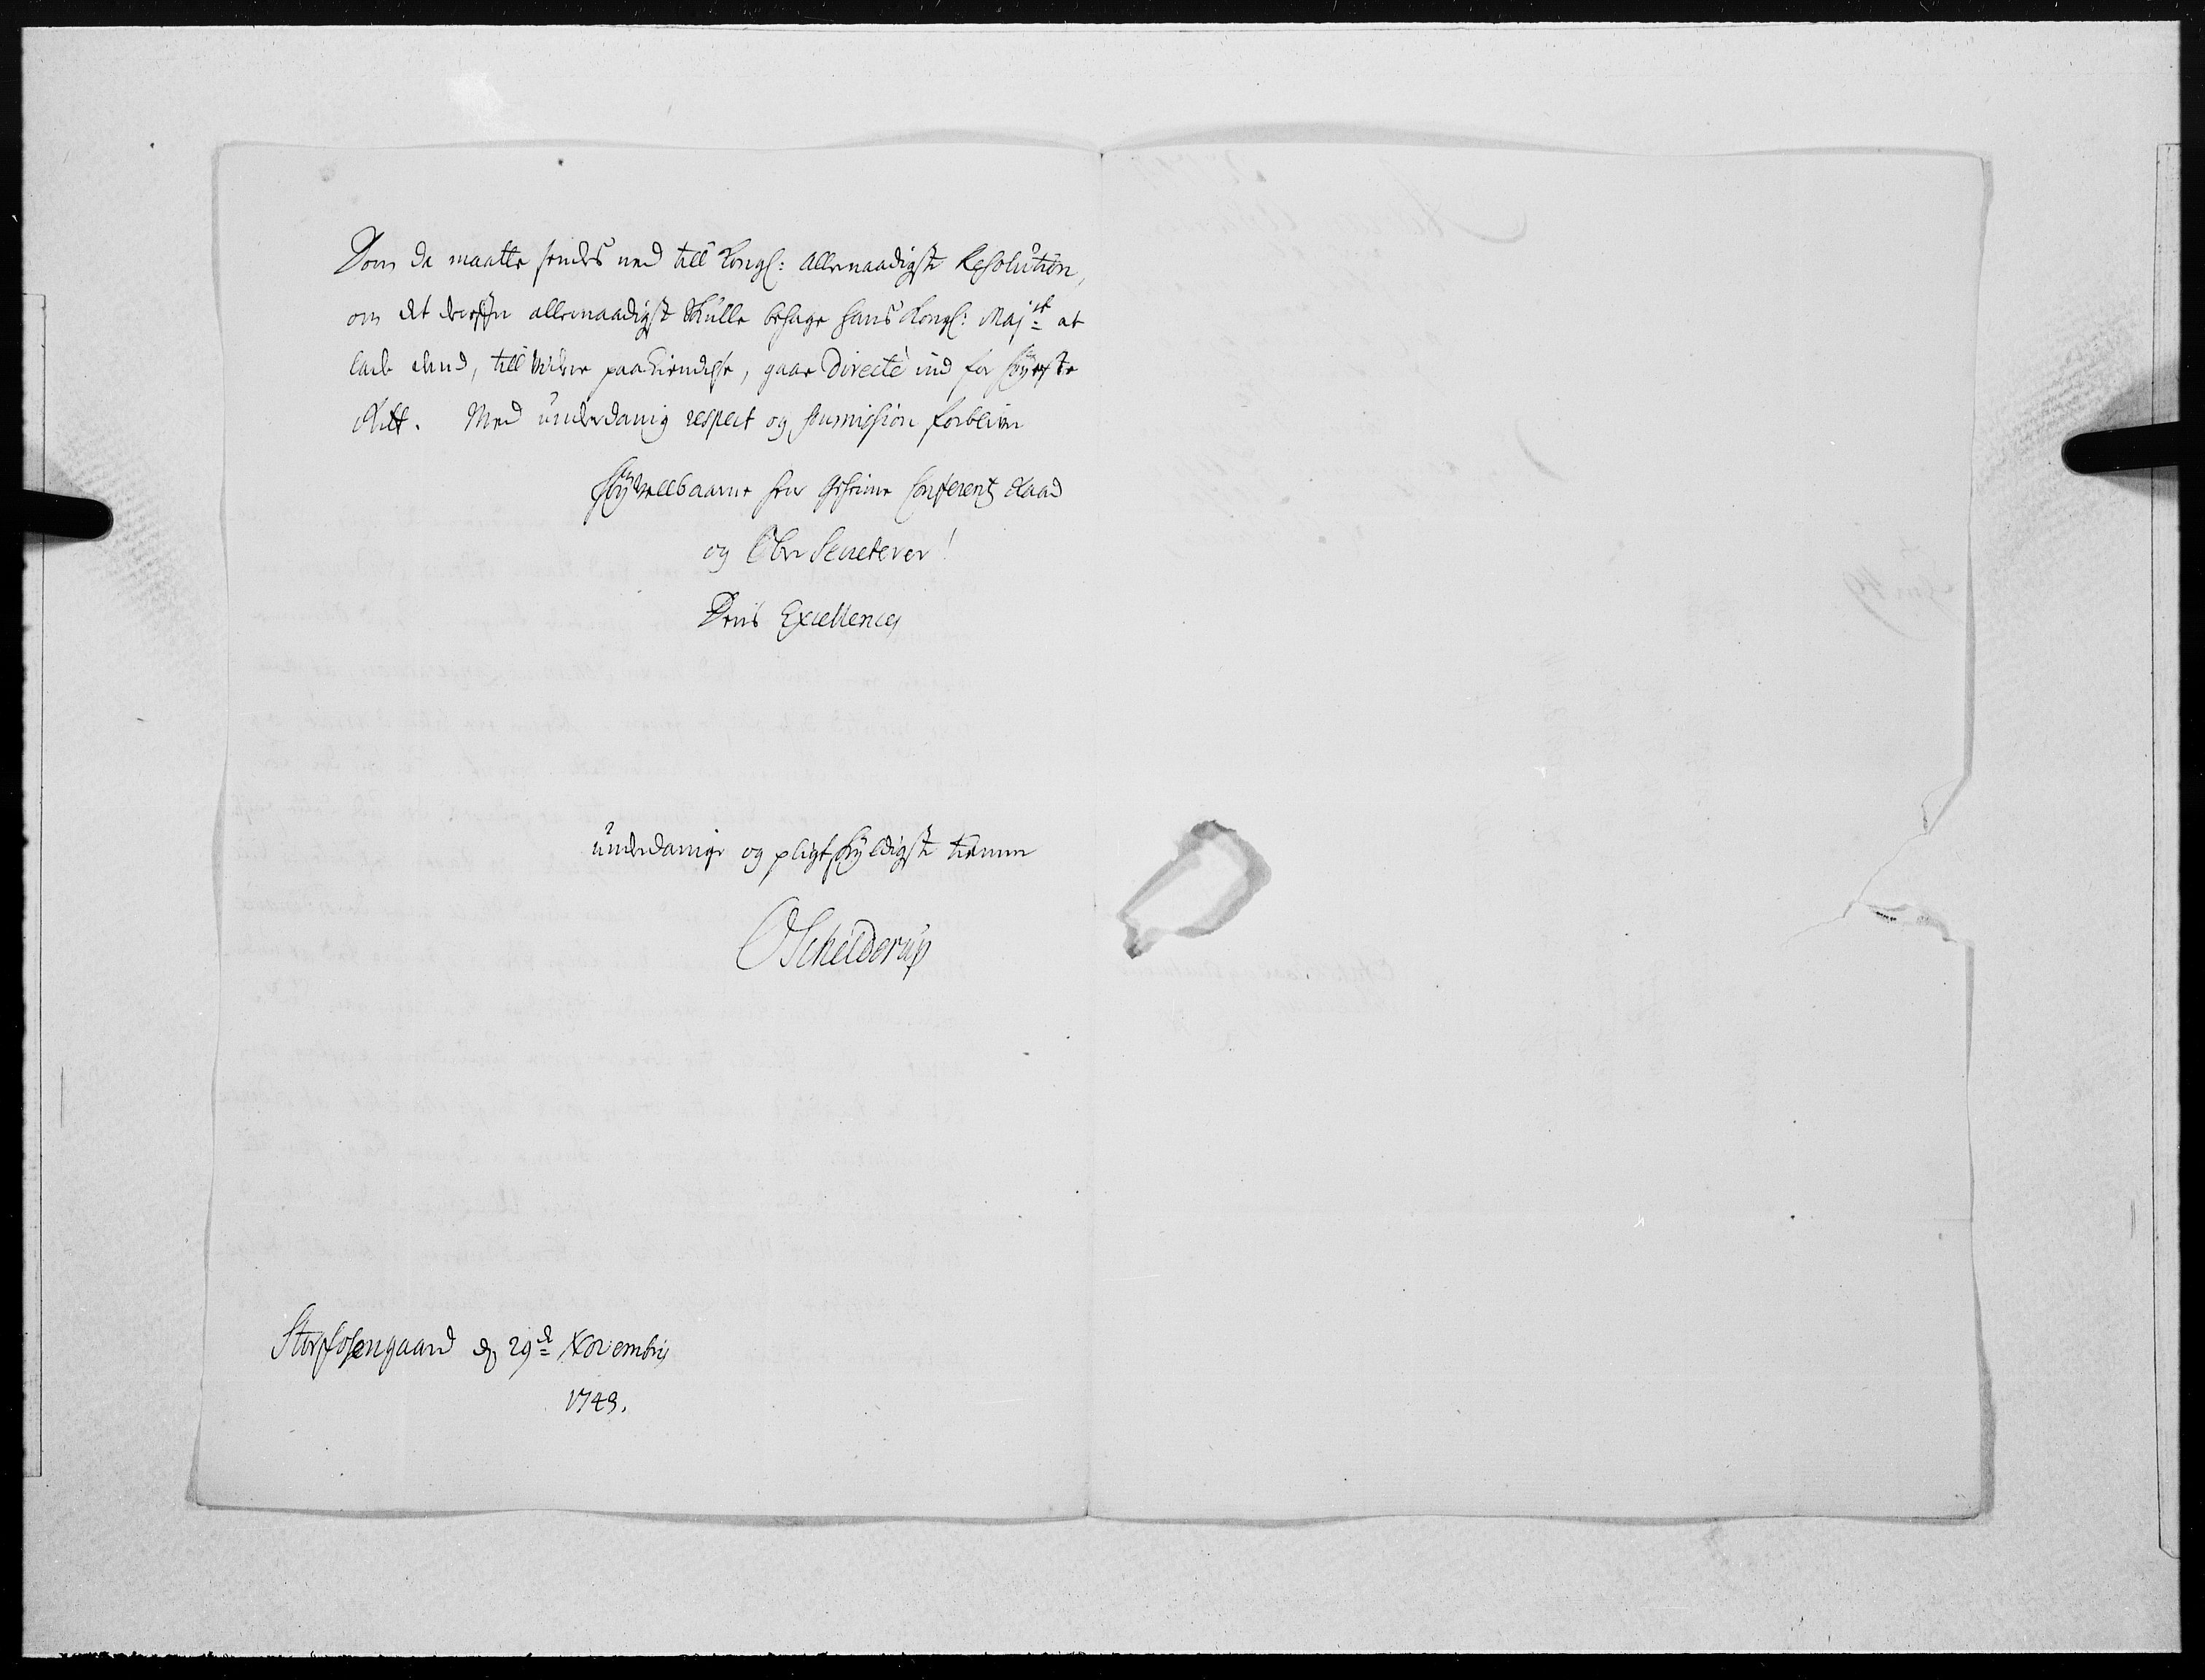 Dom da maatte sendes ned till Kongl: allernaadigste Resolution,
om det derefter allernaadigst skulle behage Hans Kongl: Majst: at
lade dend, till videre paakiendelse, gaae Directe ind for Höyeste
Rett. Med underdanig respect og soumission forbliver
Höyvelbaarne Herr Geheime Conferentz Raad
og Ober Secreterer!
Deris Excellences
underdanige og pligtskyldigste tienner
OSchelderup
Storfosengaard d. 29de Novembris
1743.